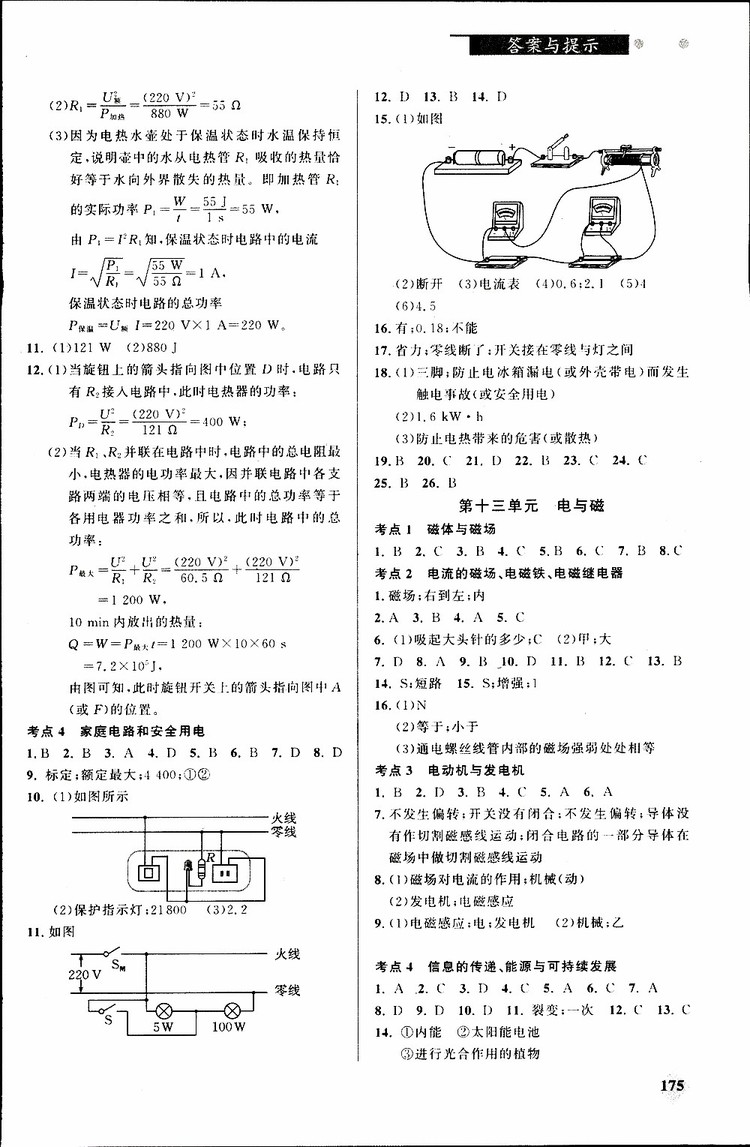 答案与提示
(2)R₁=U²额/P加热=(220 V)²/880 W=55 Ω
(3)因为电热水壶处于保温状态时水温保持恒
定,说明壶中的水从电热管 R₁ 吸收的热量恰
好等于水向外界散失的热量。即加热管 R₁
的实际功率 P₁=W/t=55 J/1 s=55 W,
由 P₁=I²R₁知,保温状态时电路中的电流
I=√(P₁/R₁)=√(55 W/55 Ω)=1 A,
保温状态时电路的总功率
P保温=U额 I=220 V×1 A=220 W。
11. (1)121 W (2)880 J
12. (1)当旋钮上的箭头指向图中位置 D 时,电路只
有 R₂接入电路中,此时电热器的功率:
P_D=U²/R₂=(220 V)²/121 Ω=400 W;
(2)当 R₁、R₂并联在电路中时,电路中的总电阻最
小,电热器的电功率最大,因并联电路中各支
路两端的电压相等,且电路中的总功率等于
各用电器功率之和,所以,此时电路中的总
功率:
P最大=U²/R₁+U²/R₂=(220 V)²/60.5 Ω+(220 V)²/121 Ω
=1 200 W,
10 min 内放出的热量:
Q=W=P最大t=1 200 W×10×60 s
=7.2×10⁵J,
由图可知,此时旋钮开关上的箭头指向图中 A
(或 F)的位置。
考点 4 家庭电路和安全用电
1. B 2. B 3. A 4. D 5. B 6. B 7. D 8. D
9. 标定;额定最大;4 400;①②
10. (1)如图所示
火线
零线
R
(2)保护指示灯;21800 (3)2.2
11. 如图
火线
S_M
220 V
零线
S
5 W 100 W
12. D 13. B 14. D
15. (1)如图
− +
(2)断开 (3)电流表 (4)0.6;2.1 (5)4
(6)4.5
16. 有;0.18;不能
17. 省力;零线断了;开关接在零线与灯之间
18. (1)三脚;防止电冰箱漏电(或外壳带电)而发生
触电事故(或安全用电)
(2)1.6 kW·h
(3)防止电热带来的危害(或散热)
19. B 20. C 21. D 22. B 23. C 24. C
25. B 26. B
第十三单元 电与磁
考点 1 磁体与磁场
1. B 2. C 3. B 4. C 5. B 6. C 7. B 8. C
考点 2 电流的磁场、电磁铁、电磁继电器
1. 磁场;右到左;内
2. A 3. B 4. A 5. C
6. (1)吸起大头针的多少;C (2)甲;大
7. D 8. A 9. B 10. D 11. B 12. C 13. B
14. S;短路 15. S;增强;1
16. (1)N
(2)等于;小于
(3)通电螺丝线管内部的磁场强弱处处相等
考点 3 电动机与发电机
1. B 2. D 3. D 4. A 5. A 6. A
7. 不发生偏转;开关没有闭合;不发生偏转;导体没
有作切割磁感线运动;闭合电路的一部分导体在
磁场中做切割磁感线运动
8. (1)磁场对电流的作用;机械(动)
(2)发电机;电磁感应
9. (1)电磁感应;电;发电机 (2)机械;乙
考点 4 信息的传递、能源与可持续发展
1. A 2. C 3. D 4. C 5. A 6. C 7. A
8. D 9. D 10. D 11. 裂变;一次 12. C 13. C
14. ①内能 ②太阳能电池
③进行光合作用的植物
175